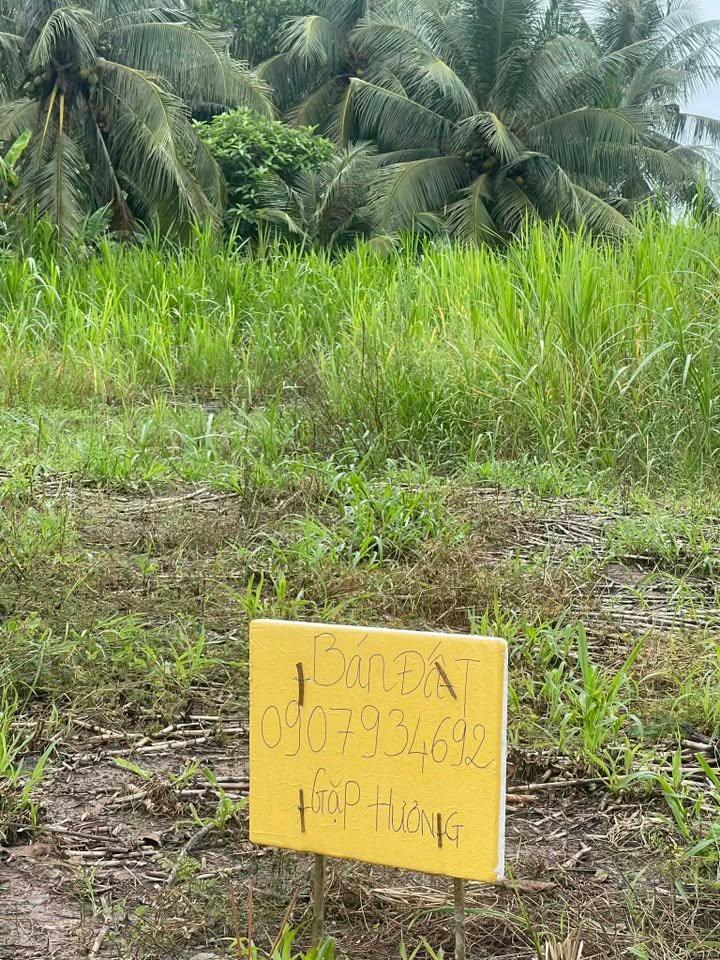 Bán Đất
0907934692
Gặp Hương